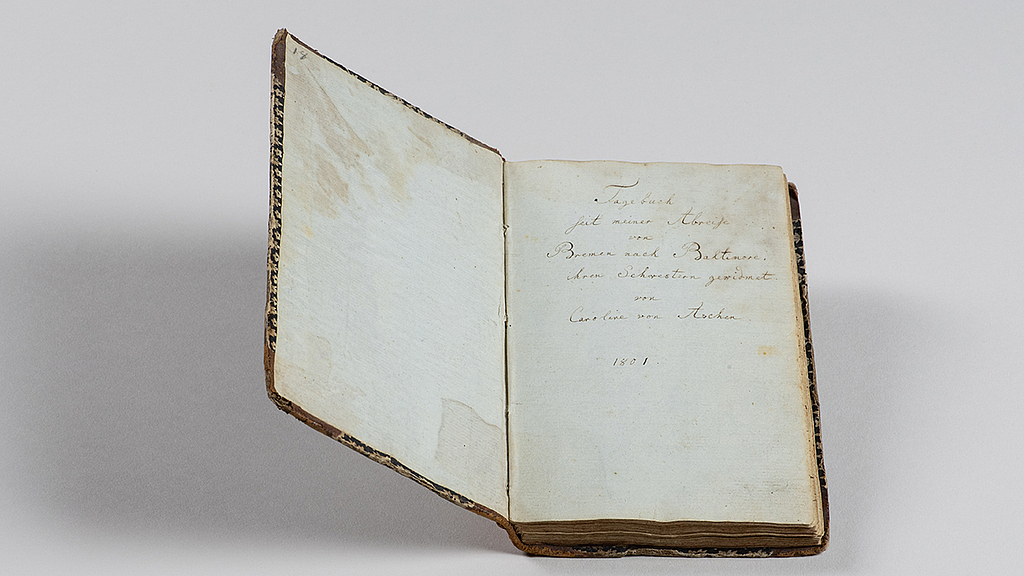 14
Tagebuch
seit meiner Abreise
von
Bremen nach Baltimore.
ihren Schwestern gewidmet
von
Caroline von Aschen
1801.